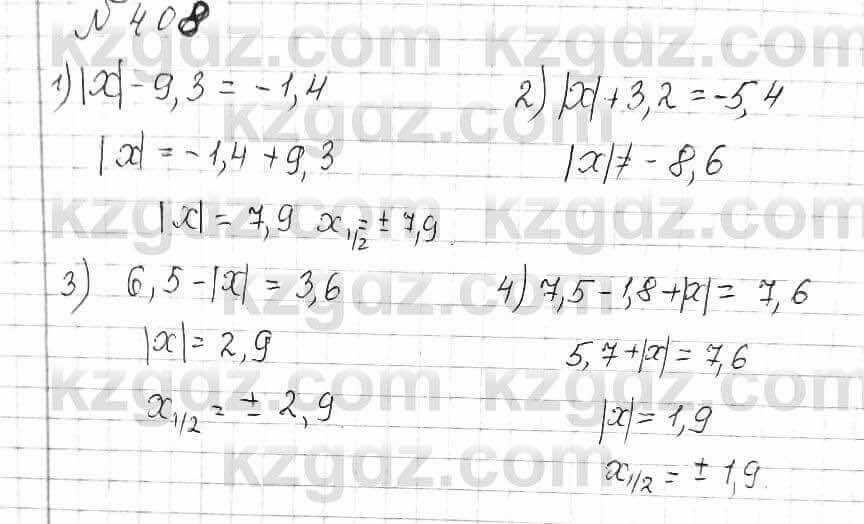 № 408
1) |x| - 9,3 = -1,4
|x| = -1,4 + 9,3
|x| = 7,9 x₁/₂ = ± 7,9.
2) |x| + 3,2 = -5,4
|x| ≠ - 8,6
3) 6,5 - |x| = 3,6
|x| = 2,9
x₁/₂ = ± 2,9
4) 7,5 - 1,8 + |x| = 7,6
5,7 + |x| = 7,6
|x| = 1,9
x₁/₂ = ± 1,9.
kzgdz.com kzgdz.com
kzgdz.com
kzgdz.com kzgdz.com
kzgdz.com
kzgdz.com kzgdz.com
kzgdz.com